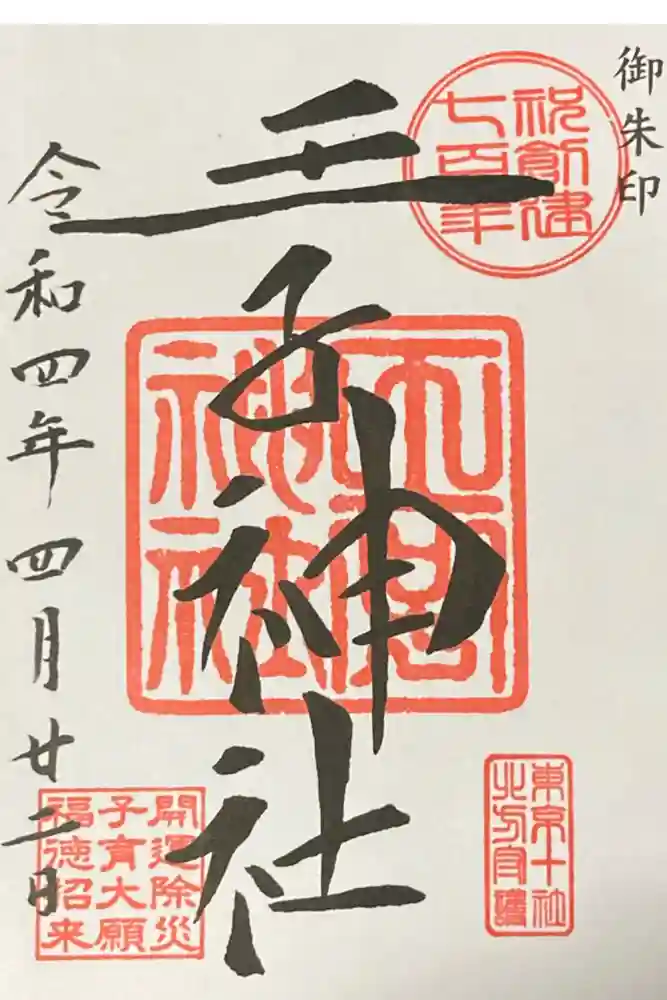 御朱印
祝創建
七百年
王子神社
王子宮
神社
東京十社
北方守護
開運除災
子育大願
福徳招来
令和四年四月廿二日